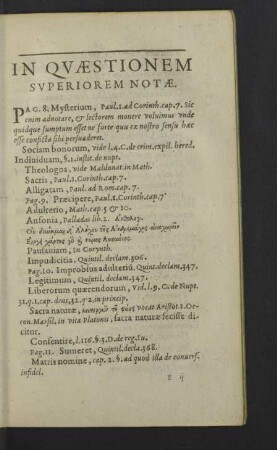 IN QVÆSTIONEM
SVPERIOREM NOTÆ.
PAG. 8. Mysterium, Paul. 1. ad Corinth. cap. 7. Sic
enim adnotare, & lectorem monere voluimus vnde
quidque sumptum esset ne forte quis ex nostro sensu hæc
esse conficta sibi persuaderet.
Sociam bonorum, vide l. 4. C. de crim. expil. hered.
Indiuiduam, §. 1. instit. de nupt.
Theologos, vide Maldonat. in Math.
Sacris, Paul. 1. Corinth. cap. 7.
Alligatam, Paul. ad Rom. cap. 7.
Pag. 9. Præcipere, Paul. 1. Corinth. cap. 7.
Adulterio, Math. cap. 5 & 10.
Ausonia, Palladas lib. 2.
Pausaniam, in Corynth.
Impudicitia, Quintil. declam. 306.
Pag. 10. Improbius adulteriū, Quint. declam. 347.
Legitimum, Quintil. declam. 347.
Liberorum quærendorum, Vid. l. 9. C. de Nupt.
31. q. 1. cap. deus, 32. q. 2. in princip.
Sacra naturæ, vocat Aristot. 1. Oecon.
Marsil. in vita Platonis, sacra naturæ fecisse dicitur.
Consentire, l. 116. §. 3. D. de reg. Iu.
Pag. 11. Sumeret, Quintil. decla. 368.
Matris nomine, cap. 2. §. ad quod illa de conuers.
infidel.
E ij